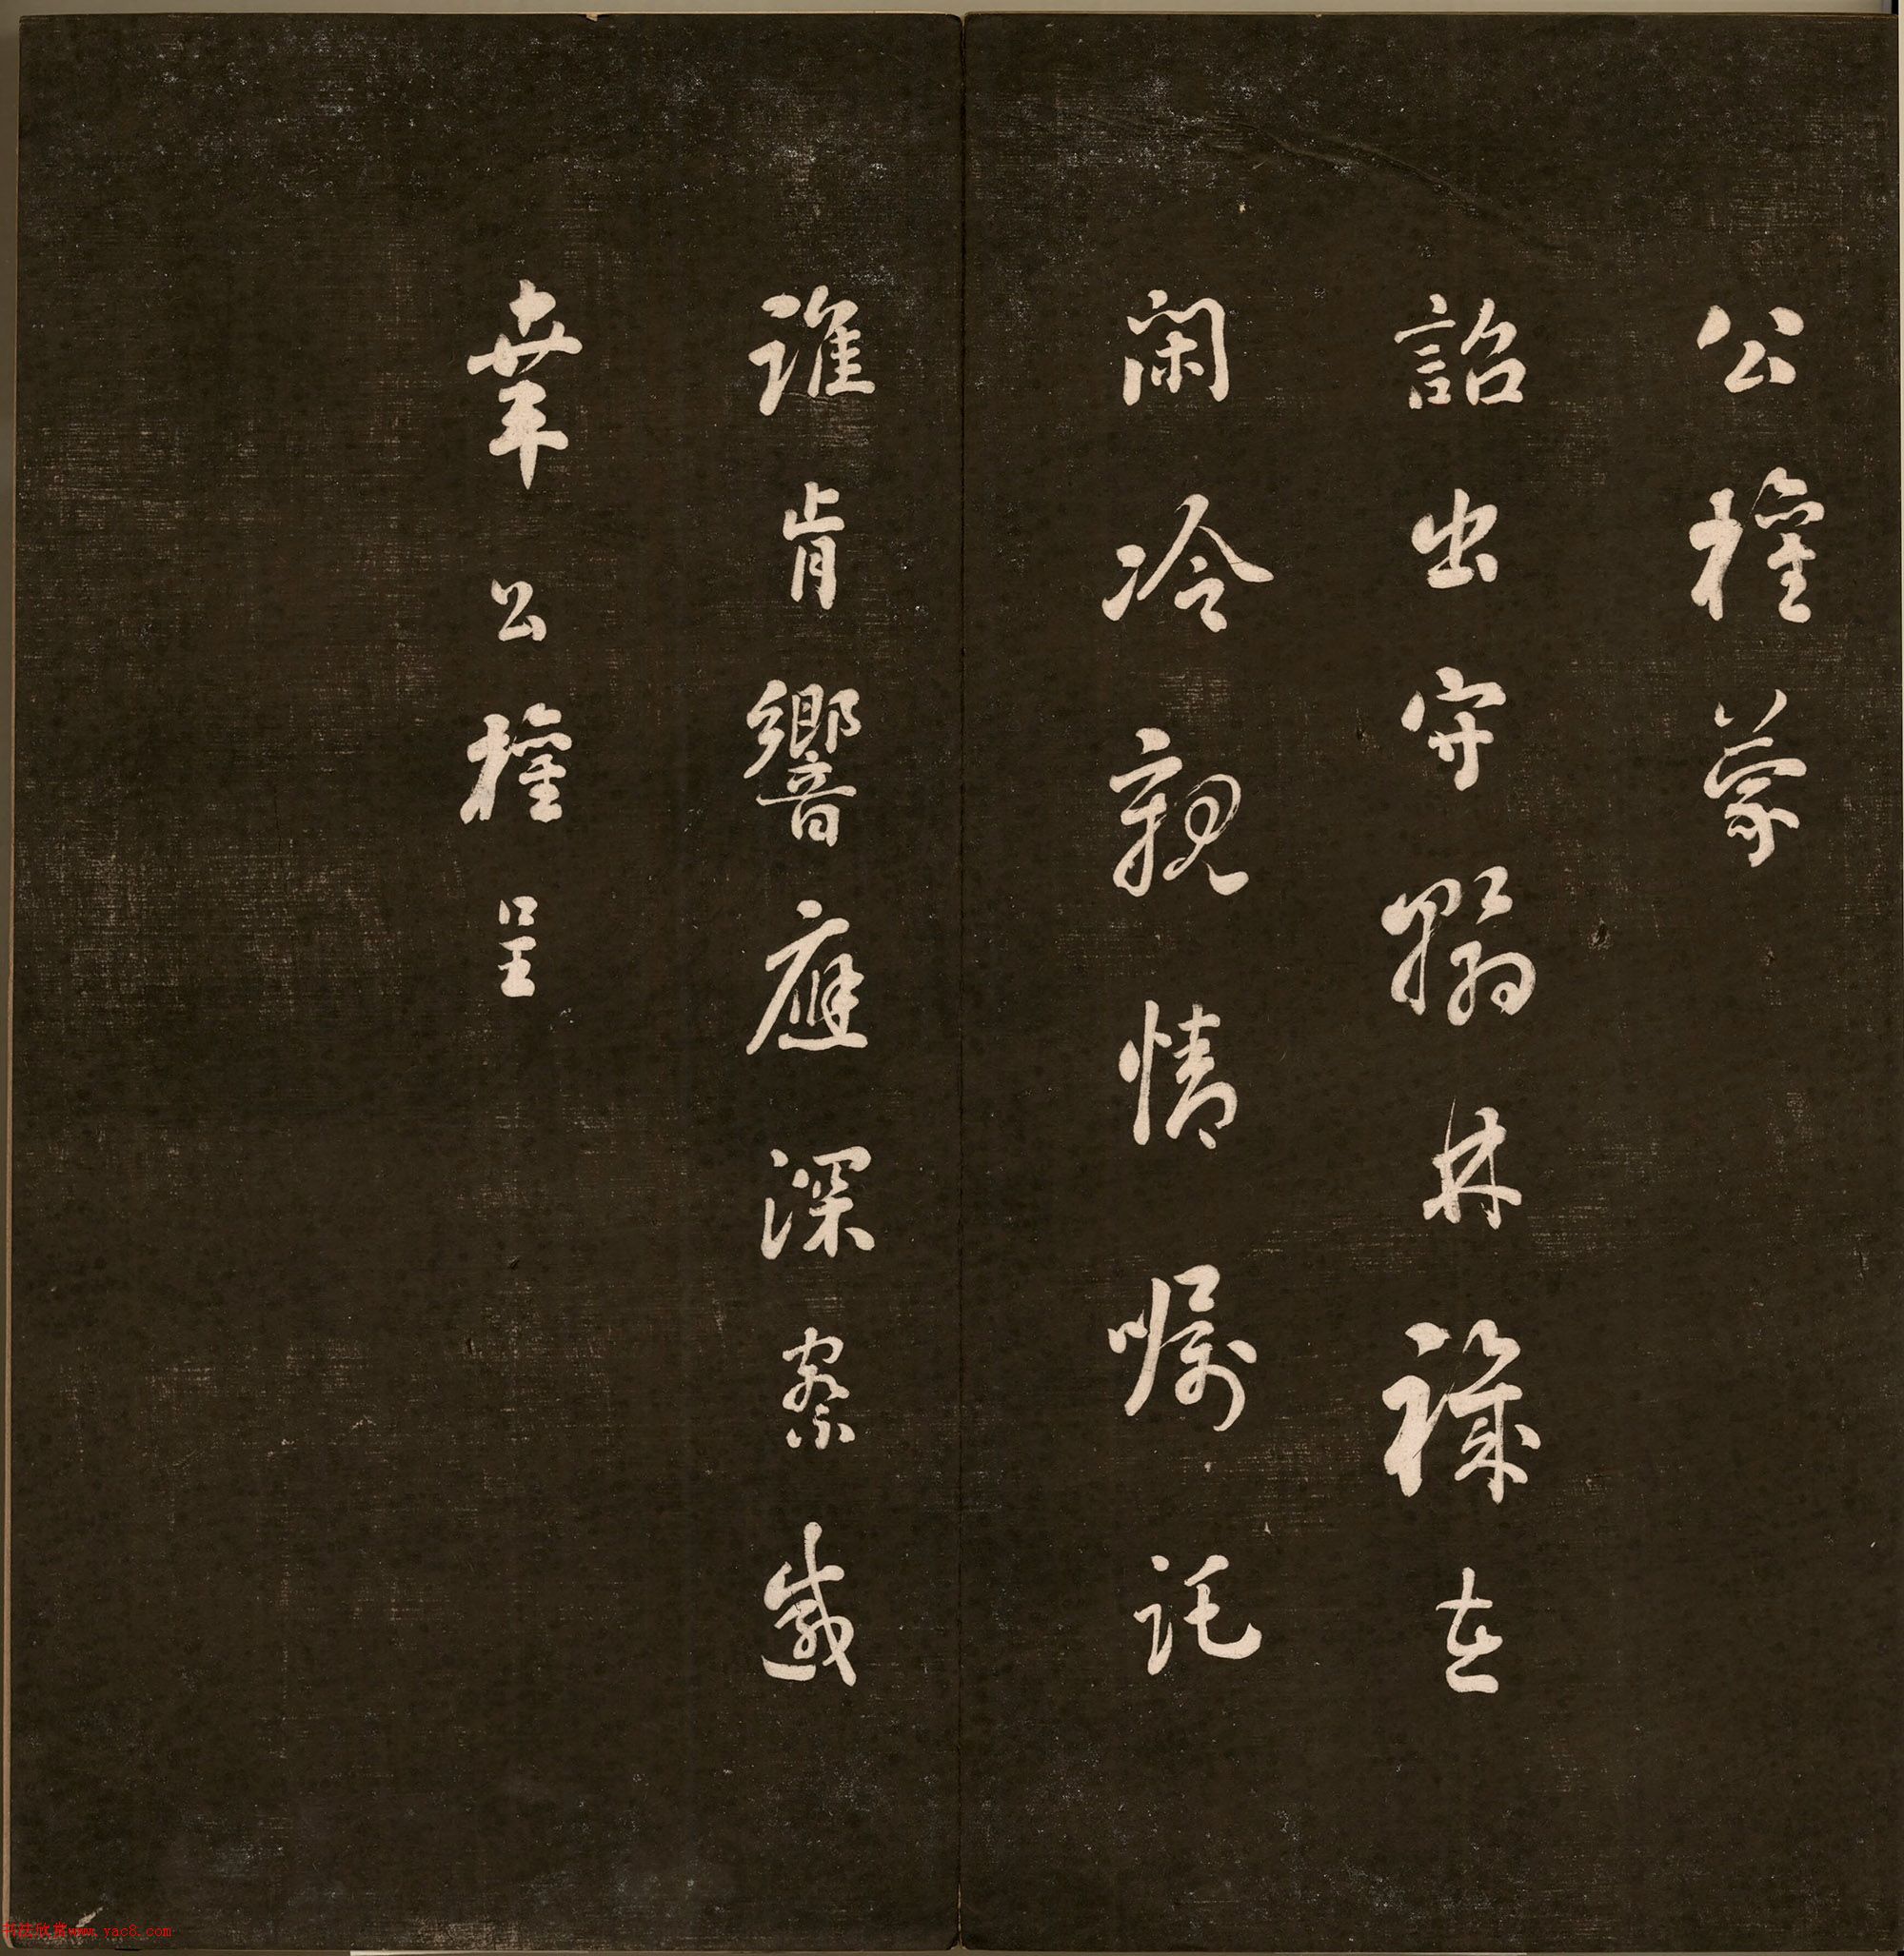 公權蒙
詔出守翰林職在
閑冷親情囑託
誰肯響應深察感
幸公權呈
书法欣赏www.yac8.com